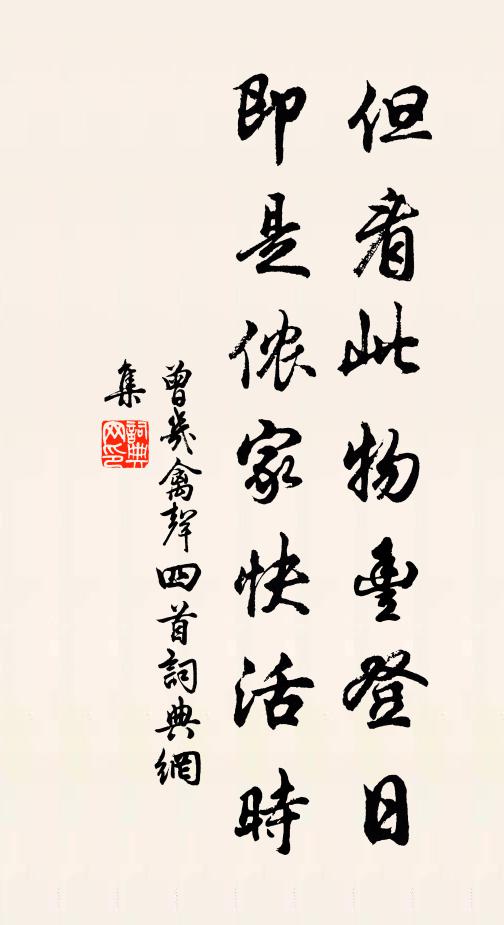 但看此物豐登日
即是侬家快活時
曾幾禽聲四首詞典網
集
詞典
网印